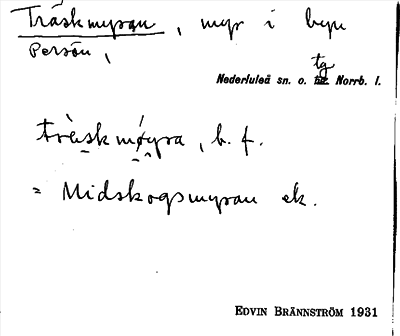 Träskmyran, myr i byn
Persön,
tg
Nederluleå sn. o. Norrb. l.
träskmøyra, b. f.
= Midskogsmyran ek.
EDVIN BRÄNNSTRÖM 1931